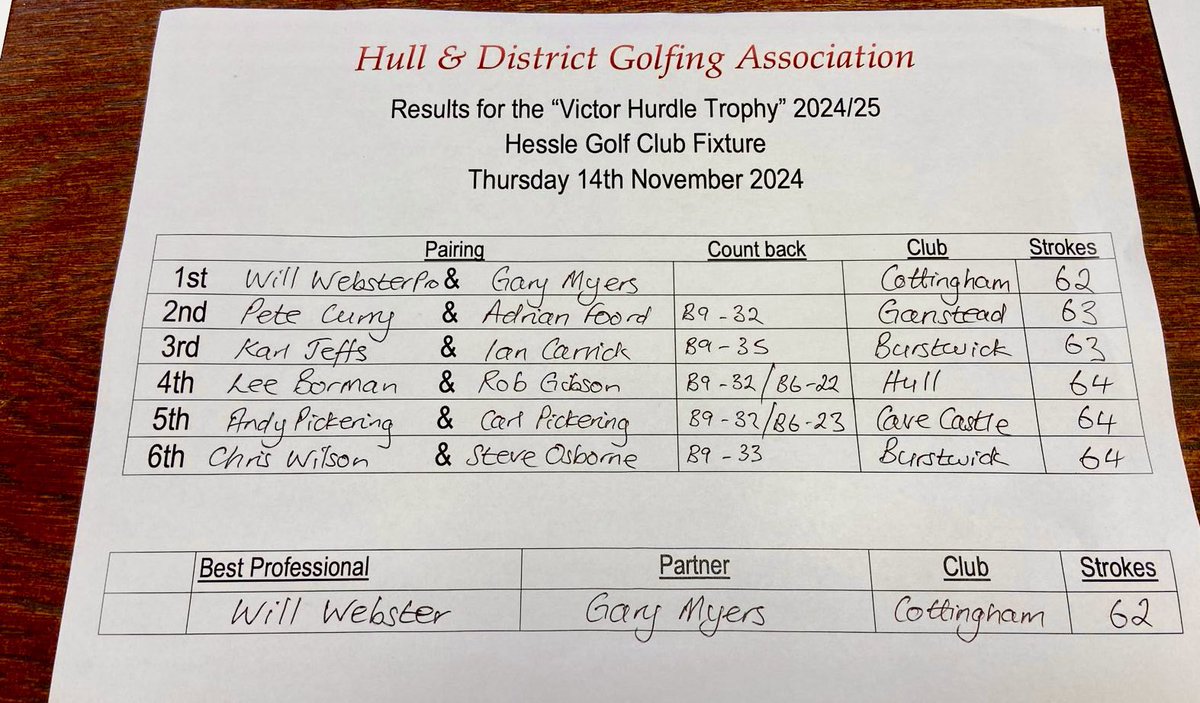 Hull & District Golfing Association
Results for the “Victor Hurdle Trophy” 2024/25
Hessle Golf Club Fixture
Thursday 14th November 2024
Pairing Count back Club Strokes
1st Will Webster Pro & Gary Myers Cottingham 62
2nd Pete Curry & Adrian Foord B9 - 32 Ganstead 63
3rd Karl Jeffs & Ian Carrick B9 - 35 Burstwick 63
4th Lee Borman & Rob Gibson B9 - 32 / B6 - 22 Hull 64
5th Andy Pickering & Carl Pickering B9 - 32 / B6 - 23 Cave Castle 64
6th Chris Wilson & Steve Osborne B9 - 33 Burstwick 64
Best Professional Partner Club Strokes
Will Webster Gary Myers Cottingham 62